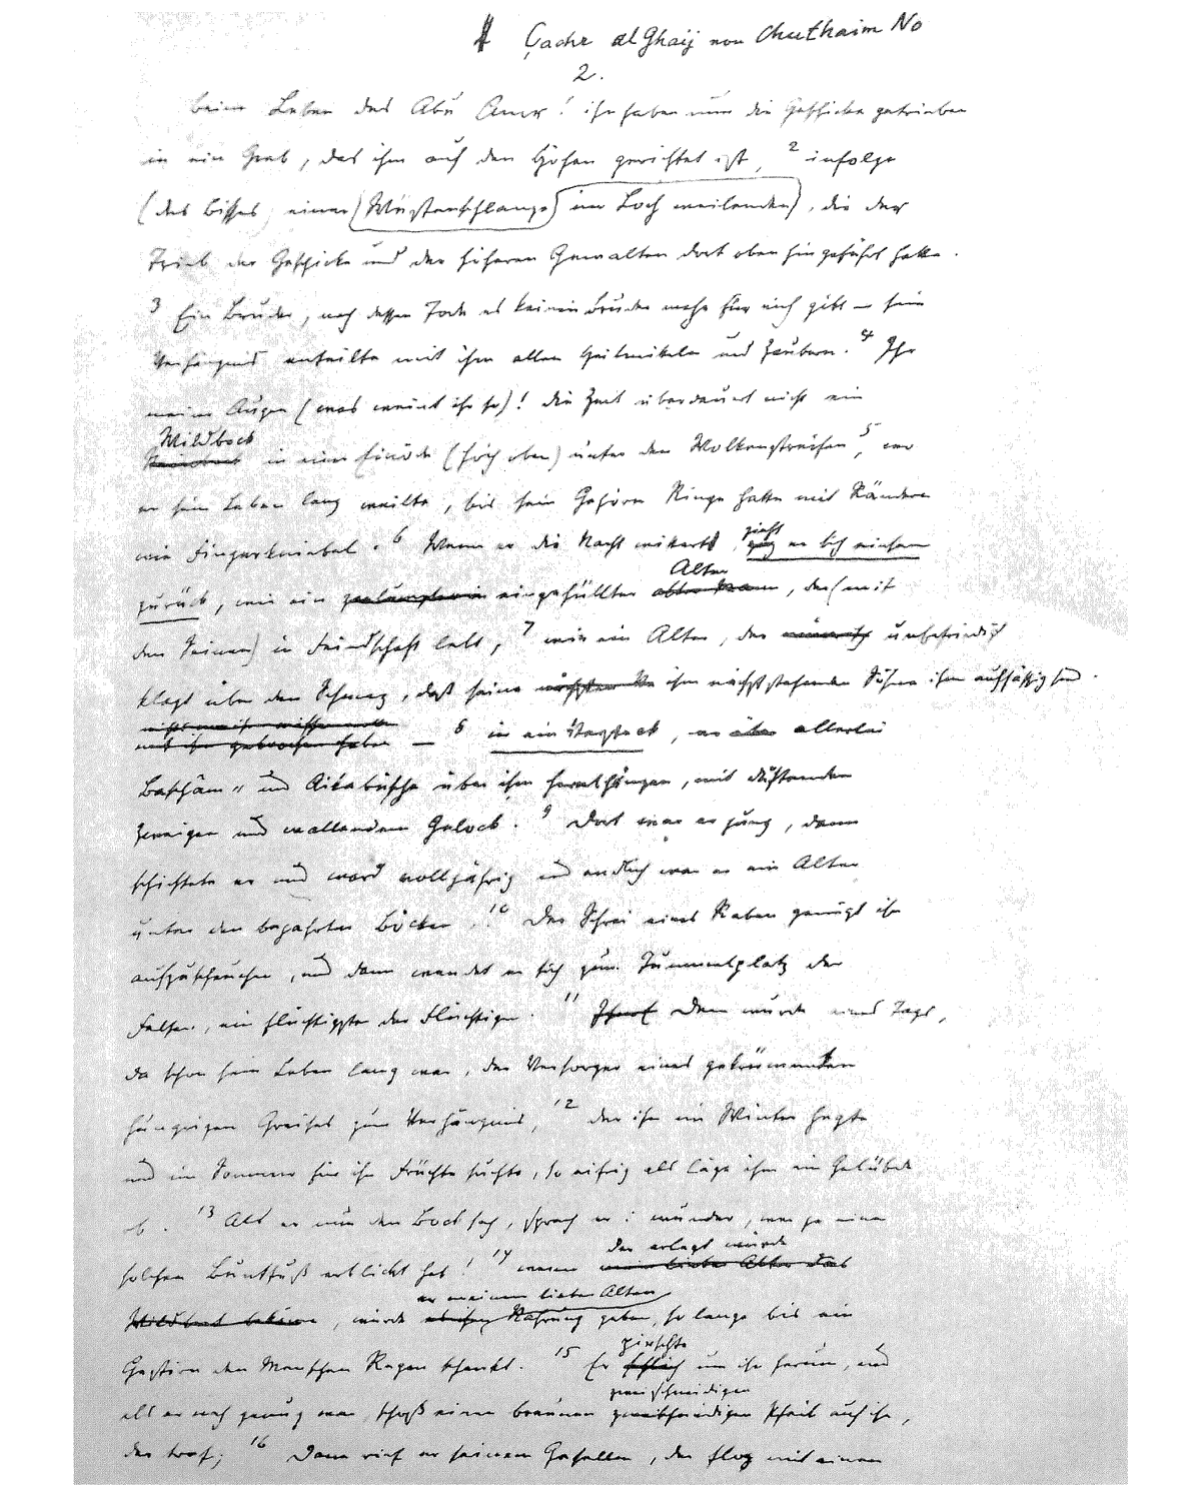 Çachr al Ghaij von Chuthaim No
2.
beim Leben des Abū Amr! ihn haben nun die Geschicke getrieben
in ein Grab, das ihm auf den Höhen gerichtet ist, ² infolge
(des Bisses) einer (Wüstenschlange) (im Loch weilenden), die der
Trieb der Geschicke und der höheren Gewalten dort oben hin geführt hatte.
³ Ein Bruder, nach dessen Tode es keinen Bruder mehr für mich gibt – sein
Verhängnis enteilte mit ihm allen Heilmitteln und Zaubern. ⁴ Ihr
meine Augen (was weint ihr so)! die Zeit überdauert nicht ein
Wildbock
Steinbock in einer Einöde (hoch oben) unter den Wolkenstreifen ⁵, wo
er sein Leben lang weilte, bis sein Gehörn Ringe hatte mit Rändern
wie Fingerknöchel. ⁶ Wenn er die Nacht wittert,
zieht
er sich einsam
zurück, wie ein eingehüllter
Alter
, der (mit
den Seinen) in Feindschaft lebt, ⁷ wie ein Alter, der unbefriedigt
klagt über den Schmerz, daß seine ihm nächststehenden Söhne ihm aufsässig sind.
mit ihm gebrochen haben — ⁸ in ein Versteck, wo allerlei
Baschâm- und Aikabüsche über ihm herabhängen, mit duftenden
Zweigen und wallendem Gelock. ⁹ Dort war er jung, dann
schichtete er und ward volljährig und endlich war er ein Alter
unter den bejahrten Böcken. ¹⁰ Der Schrei eines Raben genügt ihn
aufzuscheuchen, und dann wendet er sich zum Tummelplatz der
Felsen, ein flüchtigster der Flüchtigen. ¹¹ Dem wurde eines Tags,
da schon sein Leben lang war, der Versorger eines gekrümmten
hungrigen Greises zum Verhängnis, ¹² der ihn im Winter hegte
und im Sommer für ihn Früchte suchte, so eifrig als läge ihm ein Gelübde
ob. ¹³ Als er nun den Bock sah, sprach er: wunder, wer je einen
solchen Buntfuß erblickt hat! ¹⁴ wenn
der erlegt würde
mein lieber Alter das
er meinem lieben Alten
Wildbret bekäme, würde Nahrung geben, so lange bis ein
Gestirn den Menschen Regen schenkt. ¹⁵ Er
pirschte
schlich um ihn herum, und
zweischneidigen
als er nah genug war, schoß einen braunen zweischneidigen Pfeil auf ihn,
der traf; ¹⁶ Dann rief er seinem Gesellen, der flog mit einem